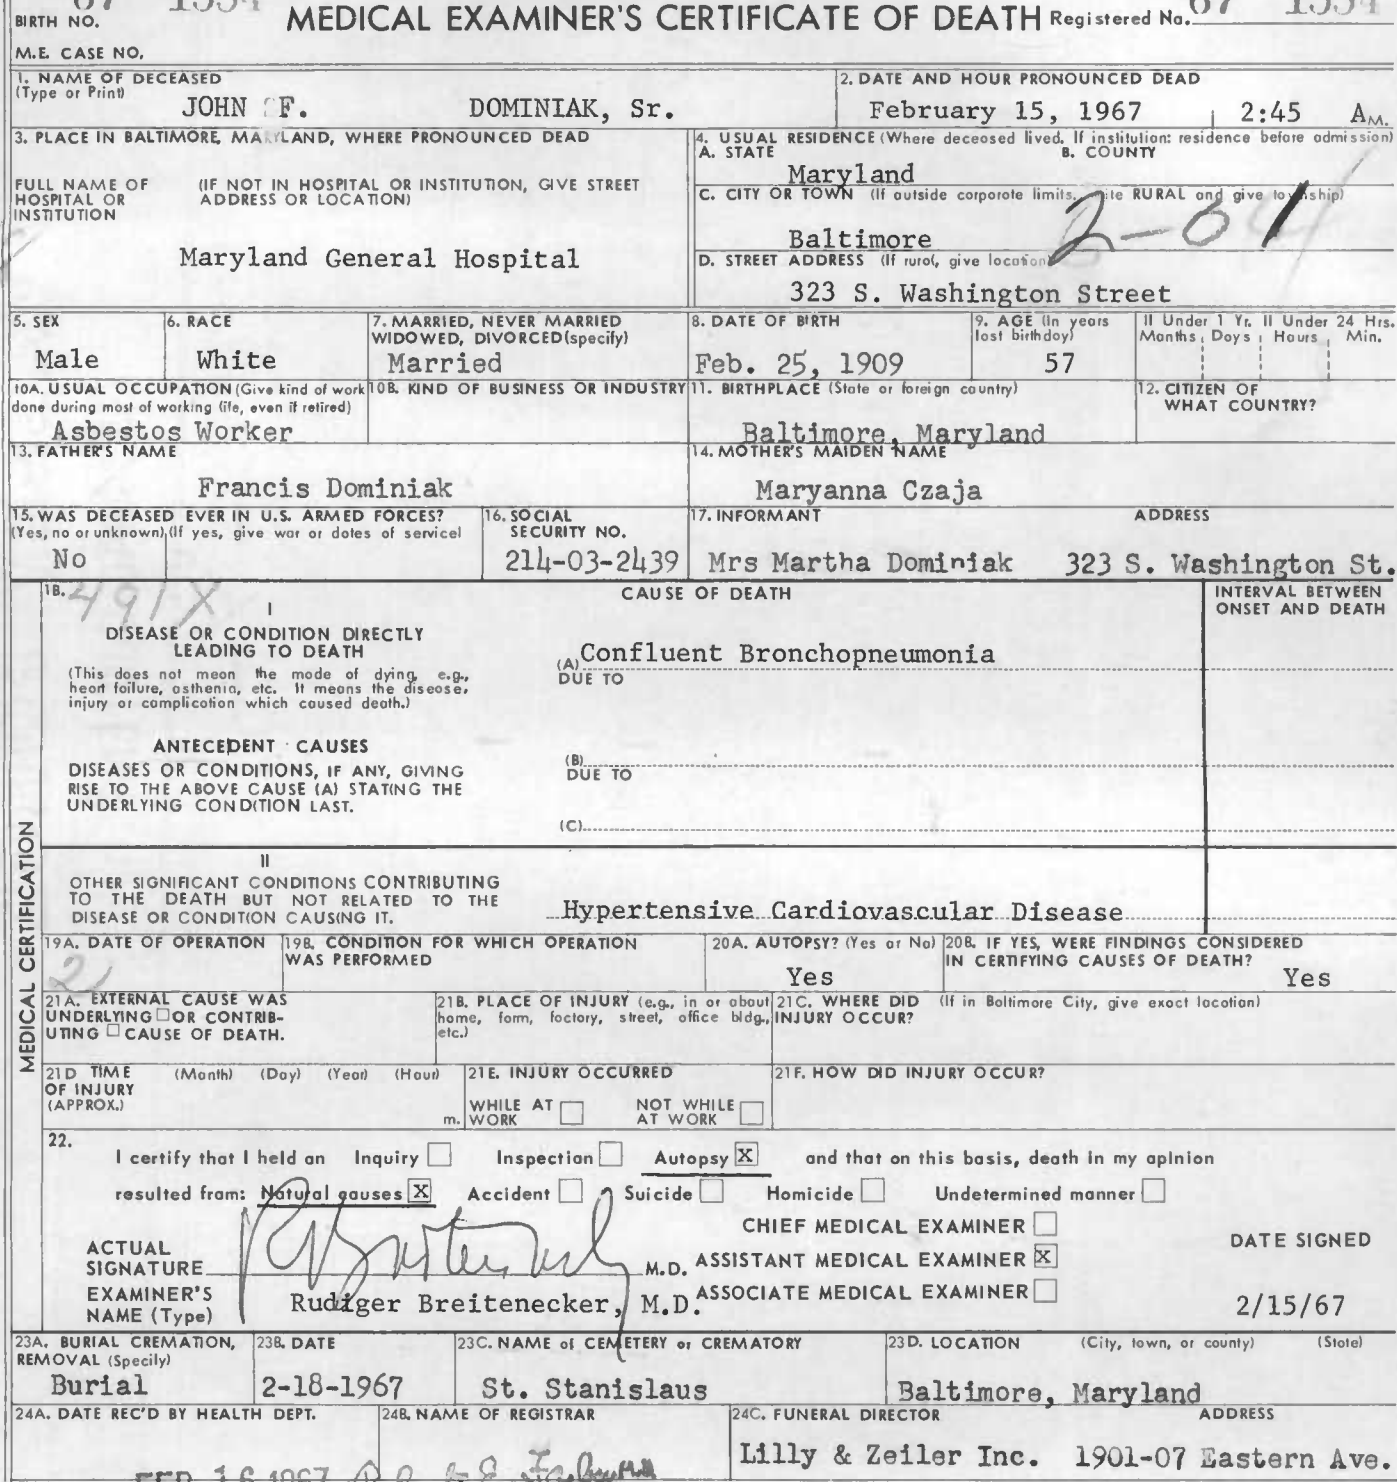 BIRTH NO. 67 1554 MEDICAL EXAMINER'S CERTIFICATE OF DEATH Registered No. 67 1554
M.E. CASE NO.
1. NAME OF DECEASED
(Type or Print)
JOHN F. DOMINIAK, Sr.
2. DATE AND HOUR PRONOUNCED DEAD
February 15, 1967 2:45 A.M.
3. PLACE IN BALTIMORE, MARYLAND, WHERE PRONOUNCED DEAD
FULL NAME OF HOSPITAL OR INSTITUTION
(IF NOT IN HOSPITAL OR INSTITUTION, GIVE STREET
ADDRESS OR LOCATION)
Maryland General Hospital
4. USUAL RESIDENCE (Where deceased lived. If institution: residence before admission)
A. STATE B. COUNTY
Maryland
C. CITY OR TOWN (If outside corporate limits, write RURAL and give township)
Baltimore
D. STREET ADDRESS (If rural, give location)
323 S. Washington Street
5. SEX
Male
6. RACE
White
7. MARRIED, NEVER MARRIED
WIDOWED, DIVORCED (specify)
Married
8. DATE OF BIRTH
Feb. 25, 1909
9. AGE (In years
last birthday)
57
If Under 1 Yr. If Under 24 Hrs.
Months Days Hours Min.
10A. USUAL OCCUPATION (Give kind of work
done during most of working life, even if retired)
Asbestos Worker
10B. KIND OF BUSINESS OR INDUSTRY
11. BIRTHPLACE (State or foreign country)
Baltimore, Maryland
12. CITIZEN OF
WHAT COUNTRY?
13. FATHER'S NAME
Francis Dominiak
14. MOTHER'S MAIDEN NAME
Maryanna Czaja
15. WAS DECEASED EVER IN U.S. ARMED FORCES?
(Yes, no or unknown) (If yes, give war or dates of service)
No
16. SOCIAL
SECURITY NO.
214-03-2439
17. INFORMANT ADDRESS
Mrs Martha Dominiak 323 S. Washington St.
MEDICAL CERTIFICATION
18. 491X
CAUSE OF DEATH
INTERVAL BETWEEN
ONSET AND DEATH
I
DISEASE OR CONDITION DIRECTLY
LEADING TO DEATH
(This does not mean the mode of dying, e.g.,
heart failure, asthenia, etc. It means the disease,
injury or complication which caused death.)
(A) Confluent Bronchopneumonia
DUE TO
ANTECEDENT CAUSES
DISEASES OR CONDITIONS, IF ANY, GIVING
RISE TO THE ABOVE CAUSE (A) STATING THE
UNDERLYING CONDITION LAST.
(B)
DUE TO
(C)
II
OTHER SIGNIFICANT CONDITIONS CONTRIBUTING
TO THE DEATH BUT NOT RELATED TO THE
DISEASE OR CONDITION CAUSING IT.
Hypertensive Cardiovascular Disease
19A. DATE OF OPERATION
19B. CONDITION FOR WHICH OPERATION
WAS PERFORMED
20A. AUTOPSY? (Yes or No)
Yes
20B. IF YES, WERE FINDINGS CONSIDERED
IN CERTIFYING CAUSES OF DEATH?
Yes
21A. EXTERNAL CAUSE WAS
UNDERLYING ☐ OR CONTRIB-
UTING ☐ CAUSE OF DEATH.
21B. PLACE OF INJURY (e.g., in or about
home, farm, factory, street, office bldg.,
etc.)
21C. WHERE DID (If in Baltimore City, give exact location)
INJURY OCCUR?
21D TIME (Month) (Day) (Year) (Hour)
OF INJURY
(APPROX.) m.
21E. INJURY OCCURRED
WHILE AT WORK ☐ NOT WHILE AT WORK ☐
21F. HOW DID INJURY OCCUR?
22.
I certify that I held an Inquiry ☐ Inspection ☐ Autopsy ☒ and that on this basis, death in my opinion
resulted from: Natural causes ☒ Accident ☐ Suicide ☐ Homicide ☐ Undetermined manner ☐
CHIEF MEDICAL EXAMINER ☐
ACTUAL
SIGNATURE R Breitenecker M.D. ASSISTANT MEDICAL EXAMINER ☒ DATE SIGNED
EXAMINER'S
NAME (Type) Rudiger Breitenecker, M.D. ASSOCIATE MEDICAL EXAMINER ☐ 2/15/67
23A. BURIAL CREMATION,
REMOVAL (Specify)
Burial
23B. DATE
2-18-1967
23C. NAME of CEMETERY or CREMATORY
St. Stanislaus
23D. LOCATION (City, town, or county) (State)
Baltimore, Maryland
24A. DATE REC'D BY HEALTH DEPT.
FEB 16 1967
24B. NAME OF REGISTRAR
24C. FUNERAL DIRECTOR ADDRESS
Lilly & Zeiler Inc. 1901-07 Eastern Ave.